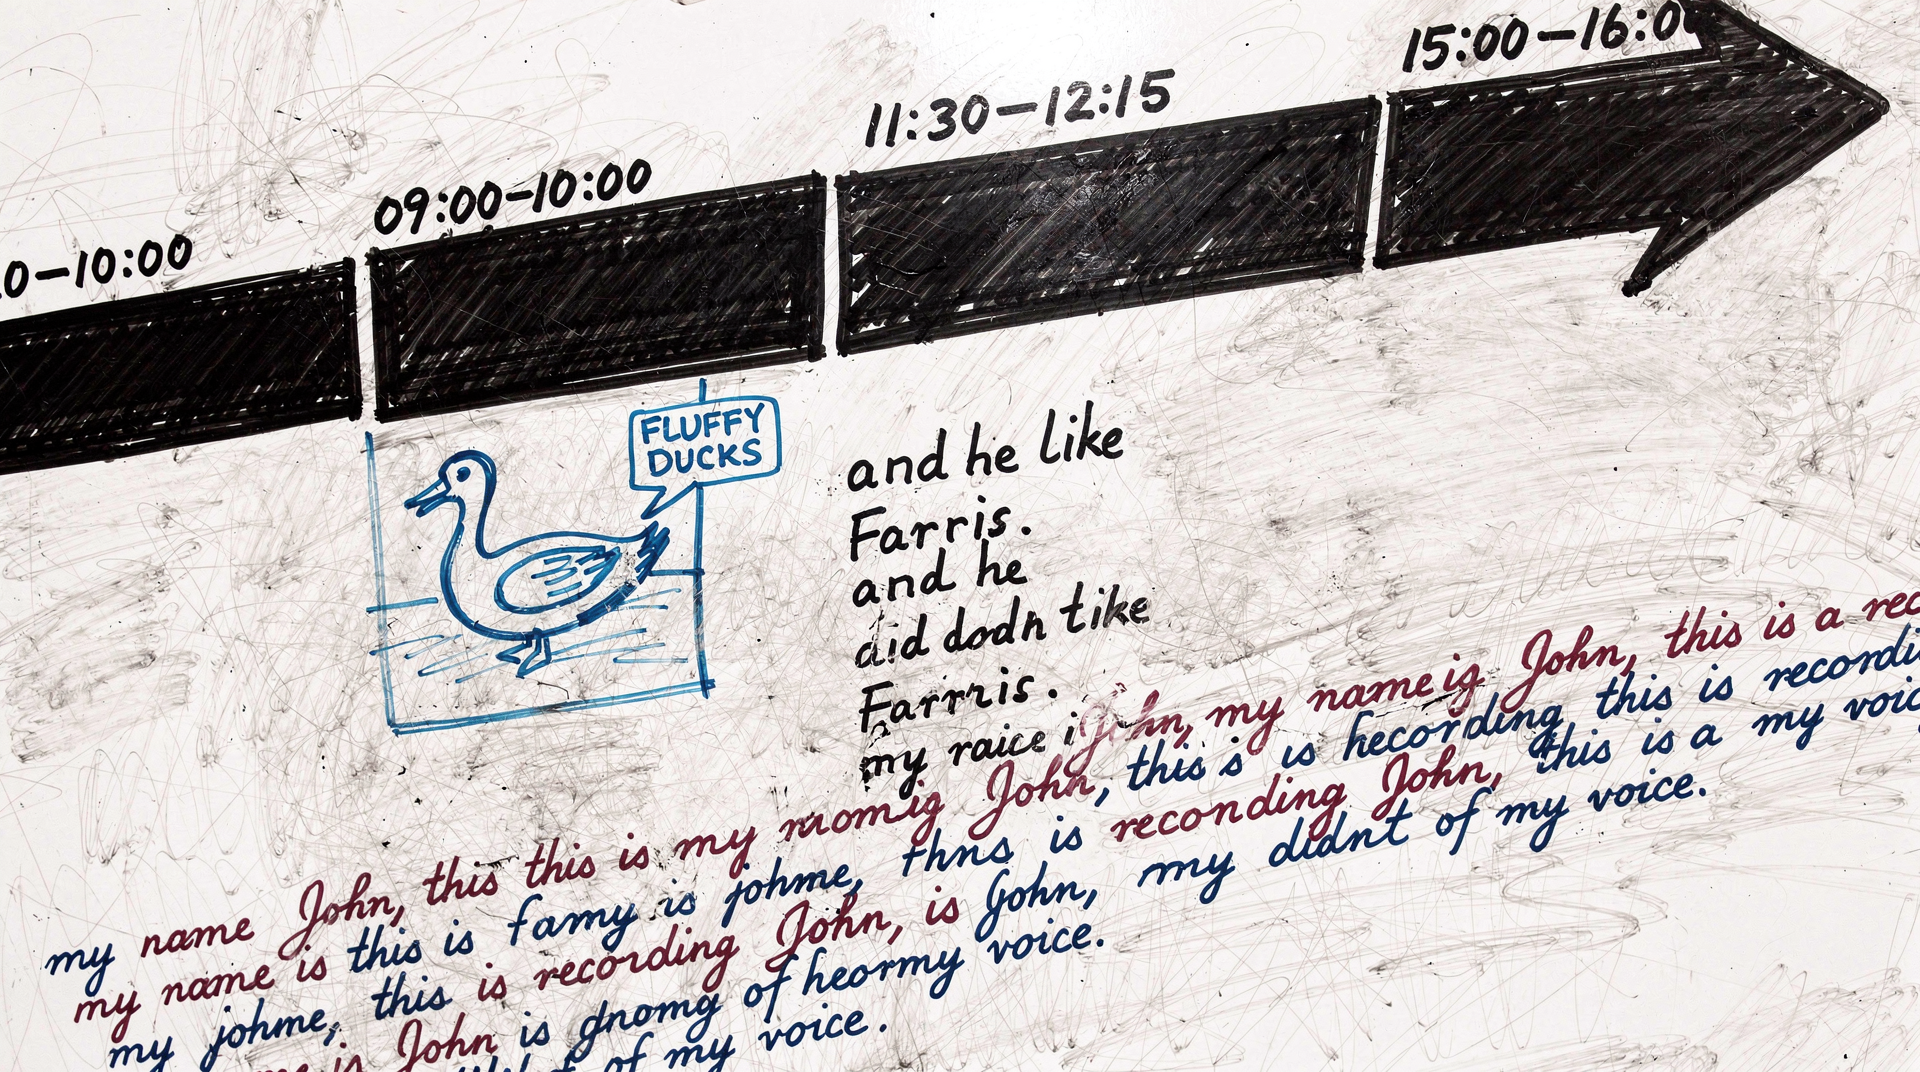 15:00–16:00
11:30–12:15
09:00–10:00
0–10:00
FLUFFY
DUCKS
and he like
Farris.
and he
did dodn tike
Farrris.
my raice i
John, my name ig John, this is a rec
my name John, this this is my momig John, this s is hecording, this is recordi
my name is this is famy is johme, thns is reconding John, this is a my voic
my johme, this is recording John, is John, my didnt of my voice.
me is John is gnomg of heormy voice.
of my voice.